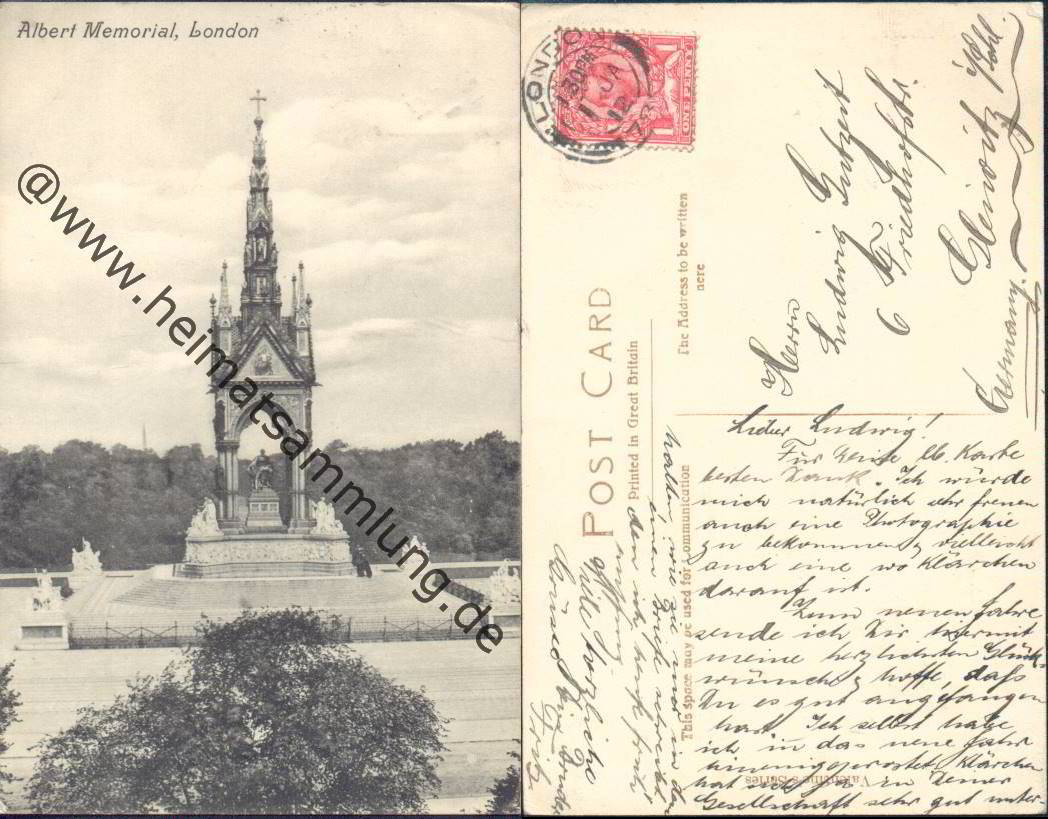 Albert Memorial, London
@www.heimatsammlung.de
LONDON
1.30 PM
1 JA
ONE PENNY
POST CARD
Printed in Great Britain
The Address to be written
here
This space may be used for Communication
Valentine's Series
Herrn
Ludwig Gutzert
6 Friedhofstr.
Gleiwitz
Germany.
Lieber Ludwig!
Für Deine lb. Karte
besten Dank. Ich würde
mich natürlich sehr freuen
auch eine Photographie
zu bekommen, vielleicht
auch eine wo Klärchen
darauf ist.
Zum neuen Jahre
sende ich Dir hiermit
meine herzlichsten Glück-
wünsche & hoffe, dass
Du es gut angefangen
hast. Ich selbst habe
ich in das neue Jahr
hineingeprostet, Klärchen
hat sich ja in Deiner
Gesellschaft sehr gut unter-
halten, wie sie mir in
einen Briefe schreibt
den ich heute früh
empfing.
Viele herzliche
Grüsse
Fritz